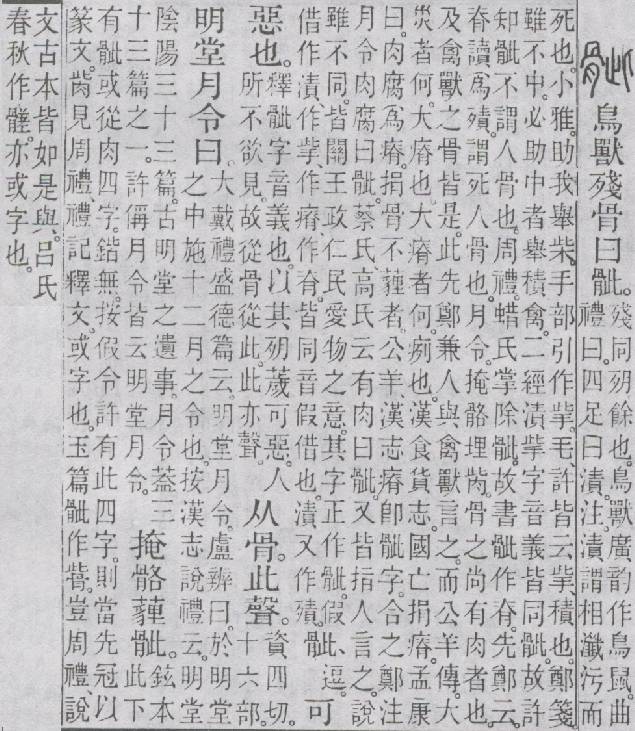 骴 鳥獸殘骨曰骴。
殘同歺餘也。鳥獸廣韵作鳥鼠。曲
禮曰。四足曰漬。注。漬謂相瀸汚而
死也。小雅。助我舉柴。手部引作㧘。毛許皆云㧘積也。鄭箋
雖不中。必助中者舉積禽。二經漬㧘字音義皆同骴。故許
知骴不謂人骨也。周禮。蜡氏掌除骴。故書骴作脊。先鄭云。
脊讀爲殨。謂死人骨也。月令。掩骼埋胔。骨之尚有肉者也。
及禽獸之骨皆是。此先鄭兼人與禽獸言之。而公羊傳。大
災者何。大瘠也。大瘠者何。㾐也。漢食貨志。國亡捐瘠。孟康
曰。肉腐爲瘠。捐骨不薶者。公羊、漢志瘠卽骴字。合之鄭注
月令肉腐曰骴。蔡氏、高氏云有肉曰骴。又皆指人言之。說
雖不同。皆關王政仁民愛物之意。其字正作骴。假
借作漬、作㧘、作瘠、作脊。皆同音假借也。漬又作殨。
骴、
逗。
可
惡也。
釋骴字音義也。以其歺薉可惡。人
所不欲見。故從骨從此。此亦聲。
从骨。此聲。
資四切。
十六部。
明堂月令曰。
大戴禮盛德篇云。明堂月令。盧辨曰。於明堂
之中施十二月之令也。按漢志說禮云。明堂
陰陽三十三篇。古明堂之遺事。月令葢三
十三篇之一。許偁月令皆云明堂月令。
掩骼薶骴。
鉉本
此下
有骴或從肉四字。鍇無。按假令許有此四字。則當先冠以
篆文。胔見周禮、禮記釋文。或字也。玉篇骴作㱴。豈周禮、說
文古本皆如是與。吕氏
春秋作髊。亦或字也。